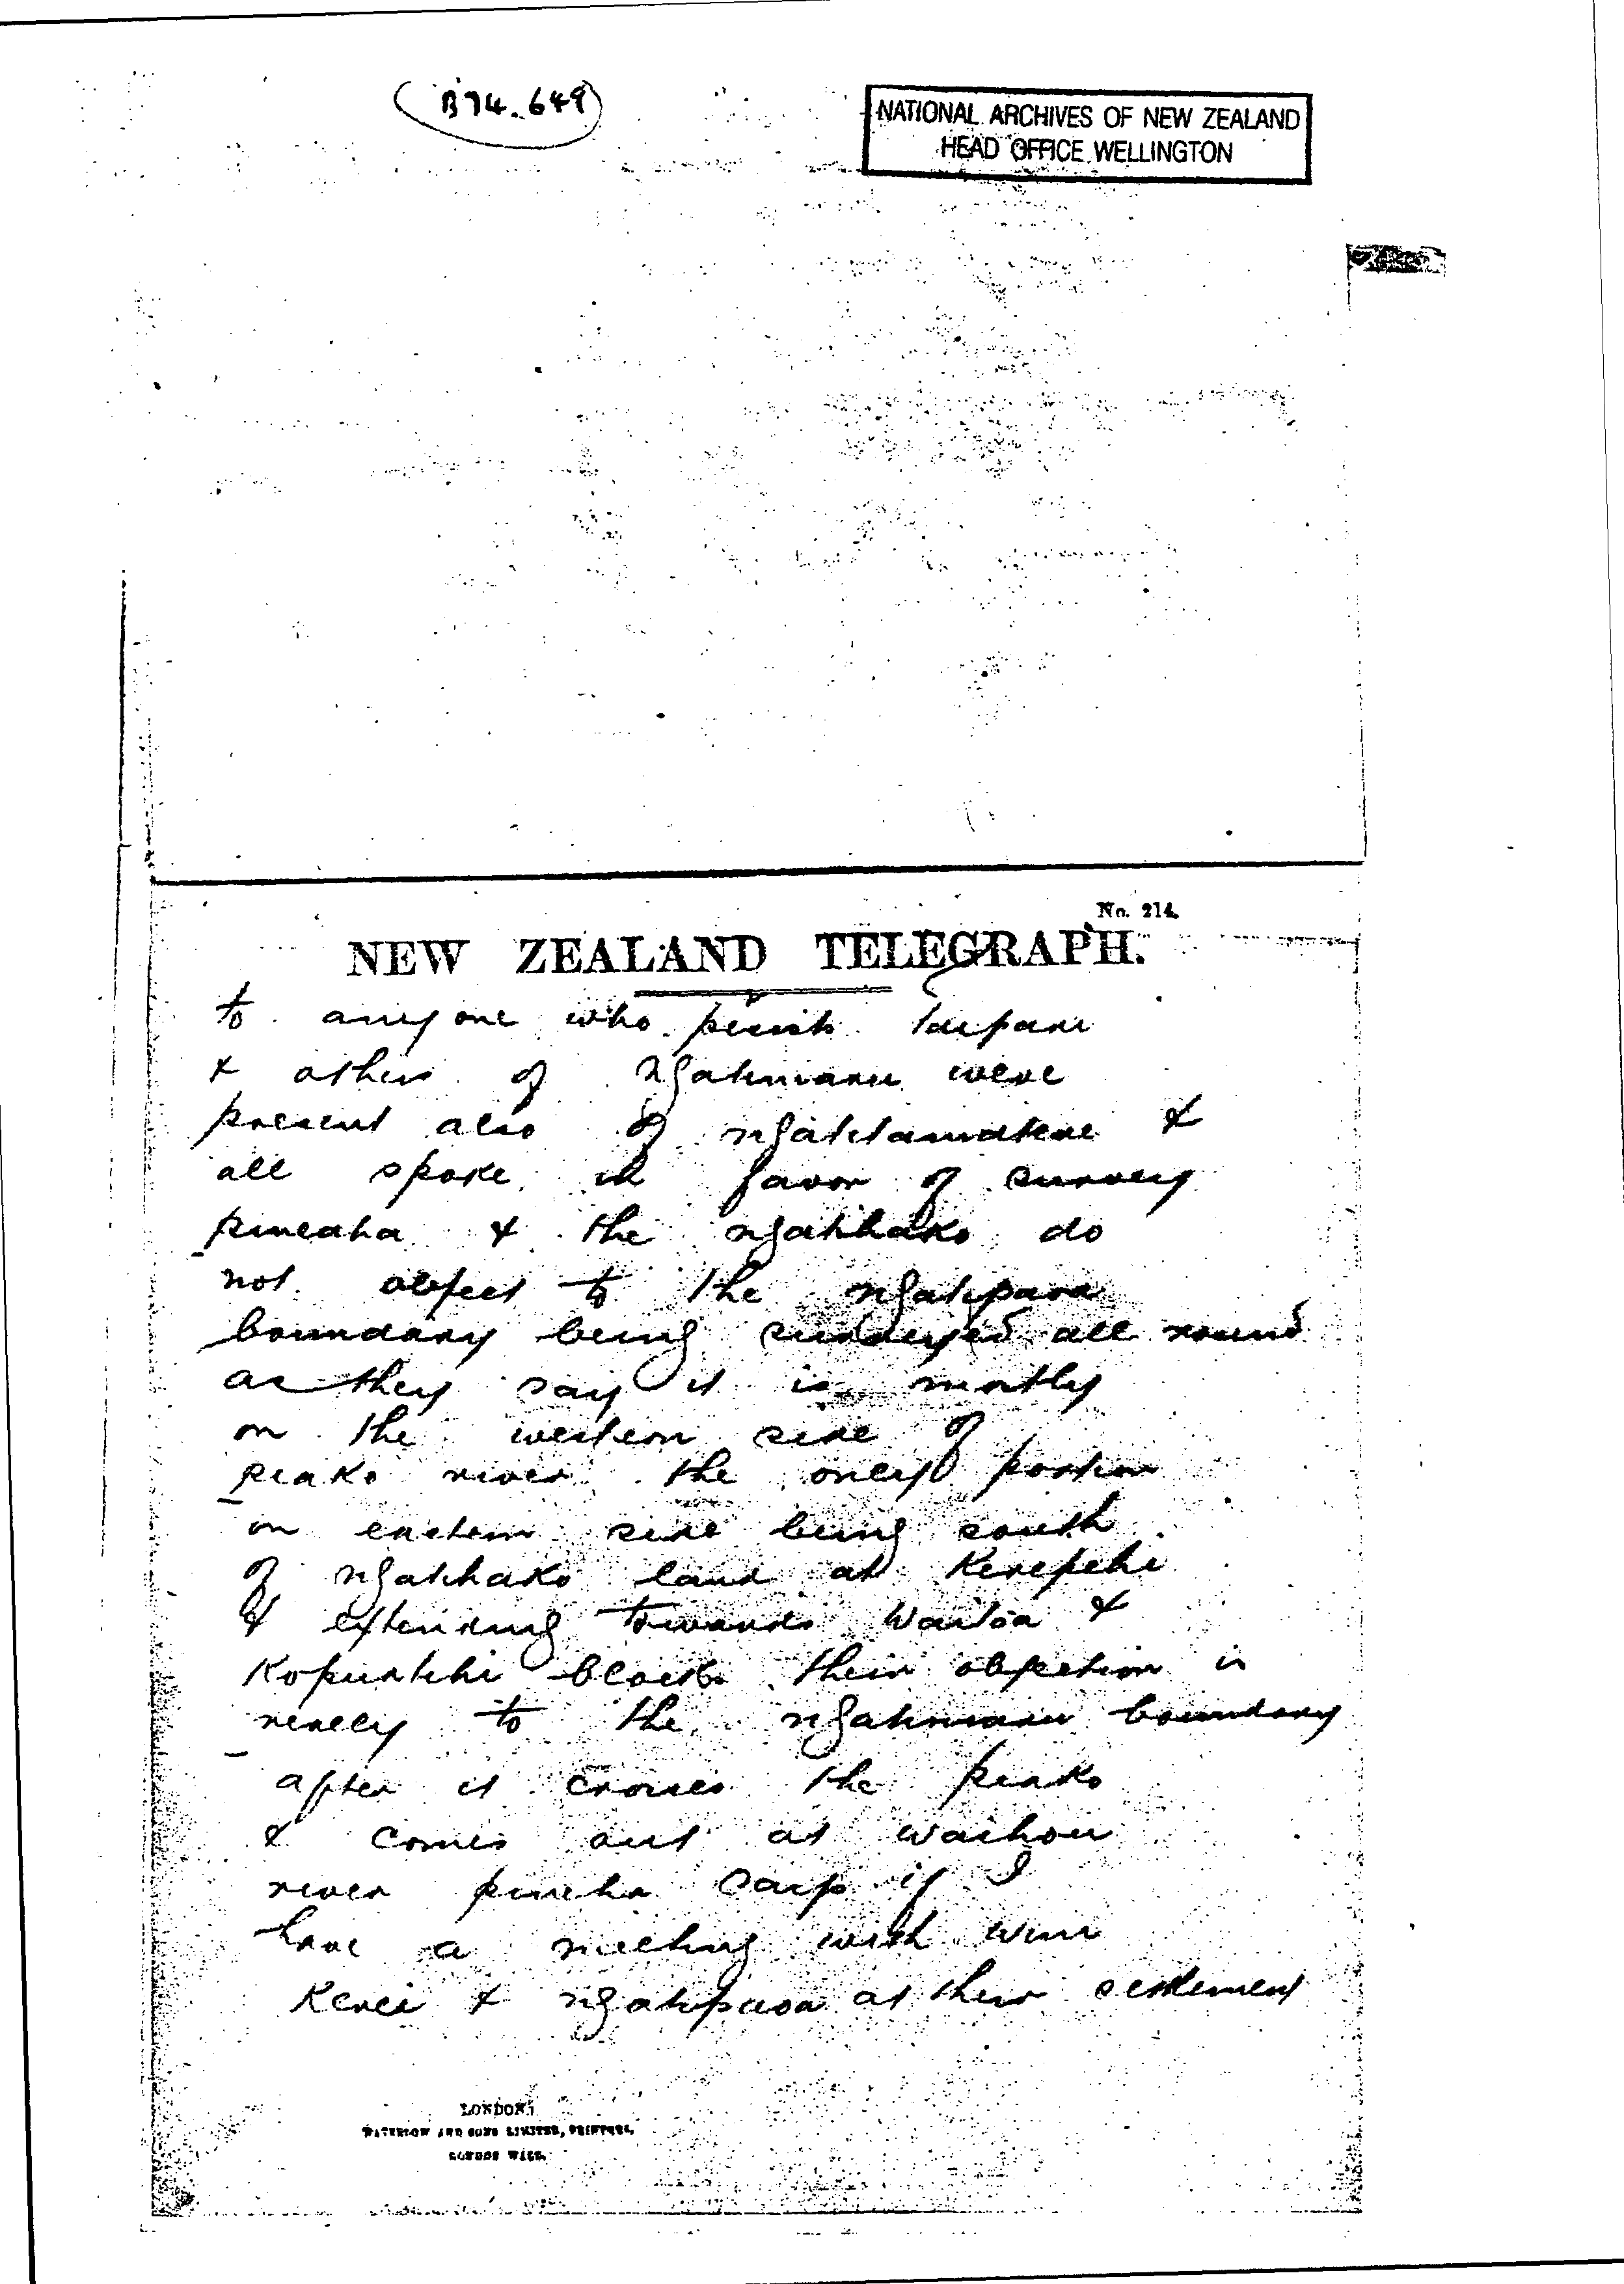 B74.649
NATIONAL ARCHIVES OF NEW ZEALAND
HEAD OFFICE WELLINGTON
No. 214.
NEW ZEALAND TELEGRAPH.
to anyone who Taipari
& others of Ngatimaru were
present also of ngatitamatera &
all spoke in favor of survey
pineaha & the ngatihako do
not object to the ngatipaoa
boundary being surveyed all round
as they say it is mostly
on the western side of
piako river the only portion
on eastern side being south
of ngatihako land at Kerepehi
& extending towards Waitoa &
Kopuatihi blocks their objection is
really to the ngatimaru boundary
after it crosses the piako
& comes out at waihou
river says if I
have a meeting with Wini
Kerei & ngatipaoa at their settlement
LONDON;
WATERLOW AND SONS LIMITED, PRINTERS,
LONDON WALL.